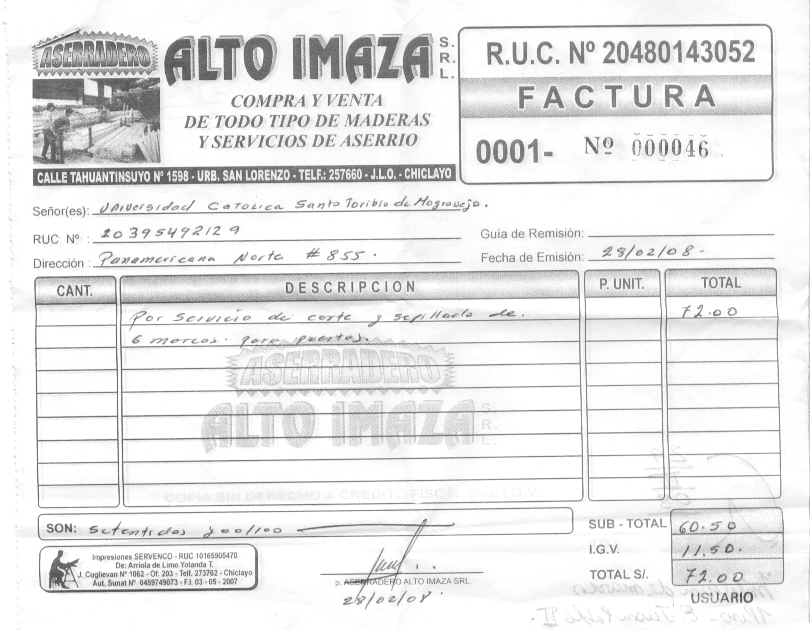 ASERRADERO ALTO IMAZA S.R.L.
COMPRA Y VENTA
DE TODO TIPO DE MADERAS
Y SERVICIOS DE ASERRIO
CALLE TAHUANTINSUYO Nº 1598 - URB. SAN LORENZO - TELF.: 257660 - J.L.O. - CHICLAYO
R.U.C. Nº 20480143052
FACTURA
0001- Nº 000046
Señor(es): Universidad Catolica Santo Toribio de Mogrovejo.
RUC Nº : 20395492129
Guia de Remisión:
Dirección : Panamericana Norte # 855.
Fecha de Emisión: 28/02/08.
CANT. DESCRIPCION P. UNIT. TOTAL
Por servicio de corte y sepillado de. 72.00
6 marcos. para puertas.
ASERRADERO
ALTO IMAZA S.R.L.
COPIA SIN DERECHO A CREDITO FISCAL I.G.V.
SON: Setentidos y 00/100
SUB - TOTAL 60.50
I.G.V. 11.50.
TOTAL S/. 72.00
USUARIO
Impresiones SERVENCO - RUC 10165905470
De: Arriola de Limo Yolanda T.
J. Cuglievan Nº 1062 - Of. 203 - Telf. 273762 - Chiclayo
Aut. Sunat Nº 0459749073 - F.I. 03 - 05 - 2007
p. ASERRADERO ALTO IMAZA SRL.
28/02/08.